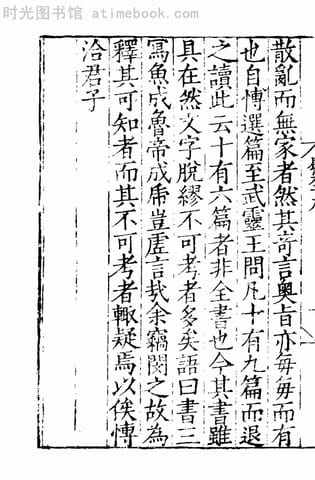 时光图书馆 - atimebook.com
散亂而無家者然其奇言奧旨亦每每而有
也自博選篇至武靈王問凡十有九篇而退
之讀此云十有六篇者非全書也今其書雖
具在然文字脫繆不可考者多矣語曰書三
寫魚成魯帝成虎豈虛言哉余竊閔之故為
釋其可知者而其不可考者輒疑焉以俟博
洽君子